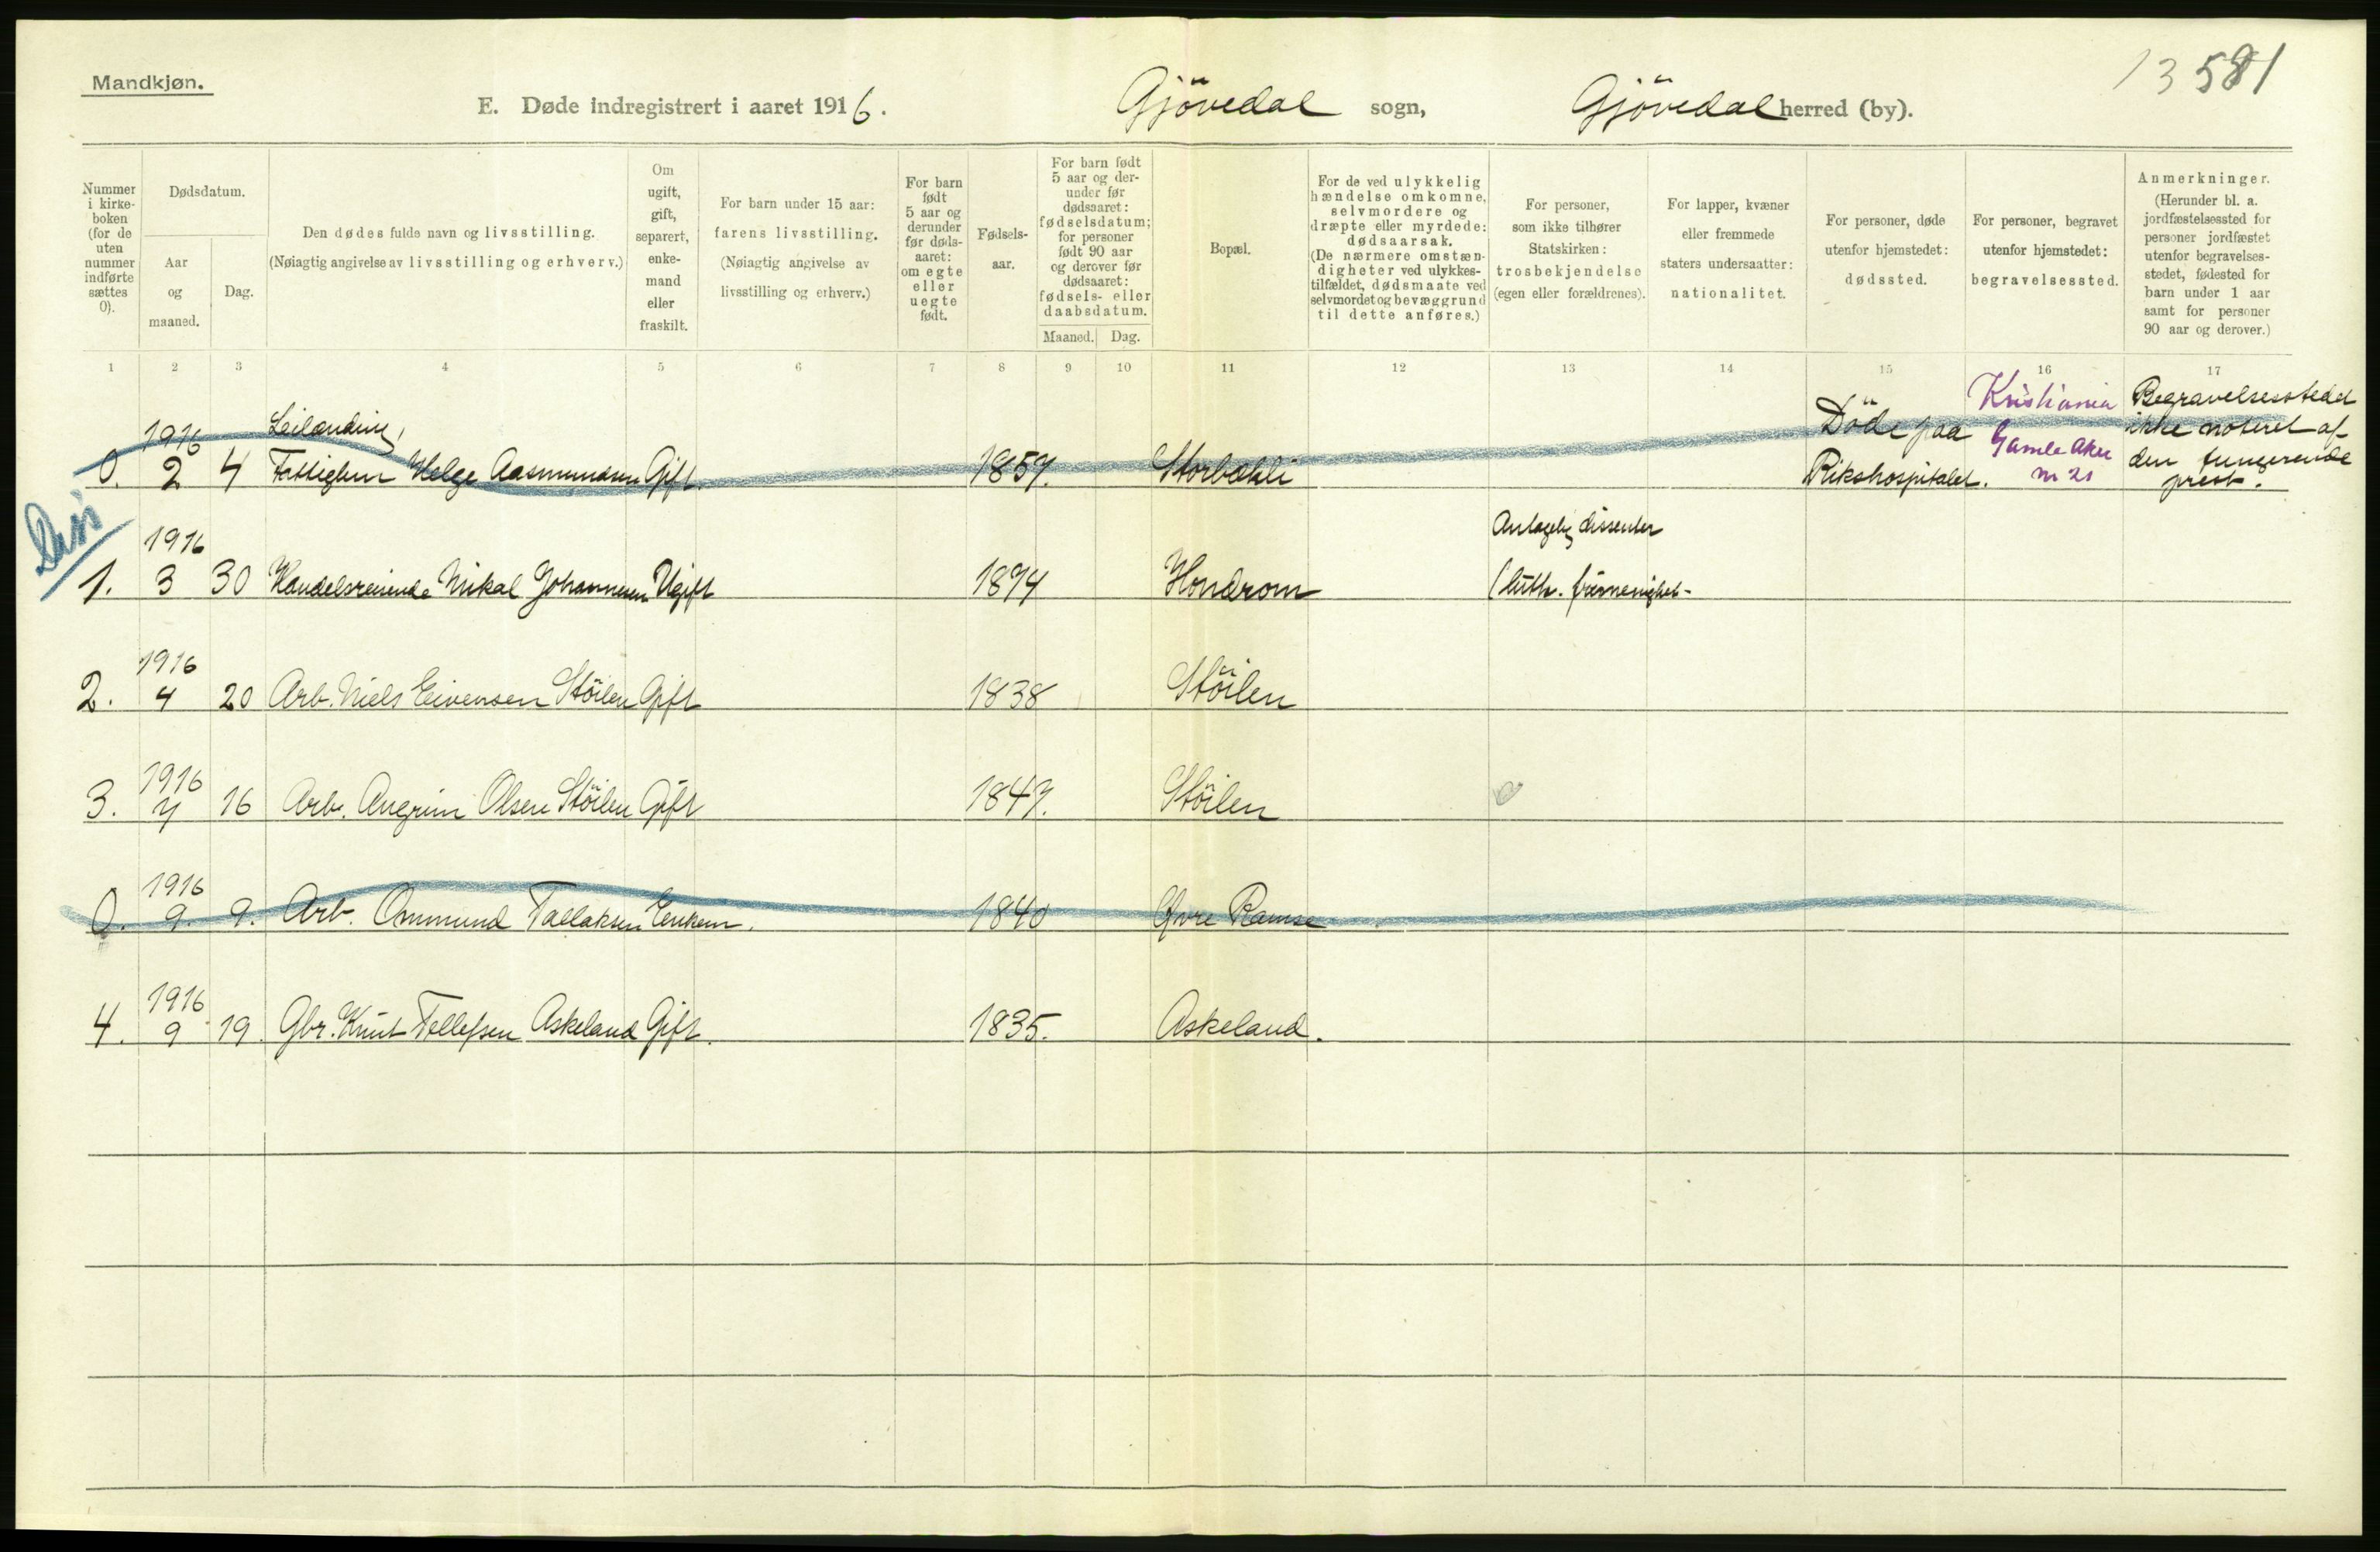 Mandkjøn.
13 581
E. Døde indregistrert i aaret 1916. Gjövedal sogn, Gjövedal herred (by).
Nummer i kirke-boken (for de uten nummer indførte sættes 0).
Dødsdatum.
Aar og maaned.
Dag.
Den dødes fulde navn og livsstilling.
(Nøiagtig angivelse av livsstilling og erhverv.)
Om ugift, gift, separert, enke-mand eller fraskilt.
For barn under 15 aar:
farens livsstilling.
(Nøiagtig angivelse av livsstilling og erhverv.)
For barn født 5 aar og derunder før døds-aaret: om egte eller uegte født.
Fødsels-aar.
For barn født 5 aar og der-under før dødsaaret: fødselsdatum; for personer født 90 aar og derover før dødsaaret: fødsels- eller daabsdatum.
Maaned. Dag.
Bopæl.
For de ved ulykkelig hændelse omkomne, selvmordere og dræpte eller myrdede: dødsaarsak.
(De nærmere omstæn-digheter ved ulykkes-tilfældet, dødsmaate ved selvmordet og bevæggrund til dette anføres.)
For personer, som ikke tilhører Statskirken: trosbekjendelse (egen eller forældrenes).
For lapper, kvæner eller fremmede staters undersaatter: nationalitet.
For personer, døde utenfor hjemstedet: dødssted.
For personer, begravet utenfor hjemstedet: begravelsessted.
Anmerkninger.
(Herunder bl. a. jordfæstelsessted for personer jordfæstet utenfor begravelses-stedet, fødested for barn under 1 aar samt for personer 90 aar og derover.)
1 2 3 4 5 6 7 8 9 10 11 12 13 14 15 16 17
1916 Leilænding, Döde paa Kristiania Begravelsesstedet
0. 2 4 Helge Aasmundsen Gift. 1857. Storbækli Rikshospitalet. Gamle Aker nr 21 ikke noteret af den fungerende prest.
1916 Antagelig dissenter
1. 3 30 Handelsreisende Mikal Johannesen Ugift 1894 Hondrom (luth. frimenighet-
1916
2. 4 20 Arb. Niels Eivensen Stöilen Gift 1838 Stöilen
1916
3. 7 16 Arb. Angrim Olsen Stöilen Gift 1847. Stöilen
1916
0. 9. 9. Arb. Ommund Tallaksen Enkem. 1840 Öfvre Ramse
1916
4. 9 19. Gbr. Knut Tellefsen Askeland Gift. 1835. Askeland.